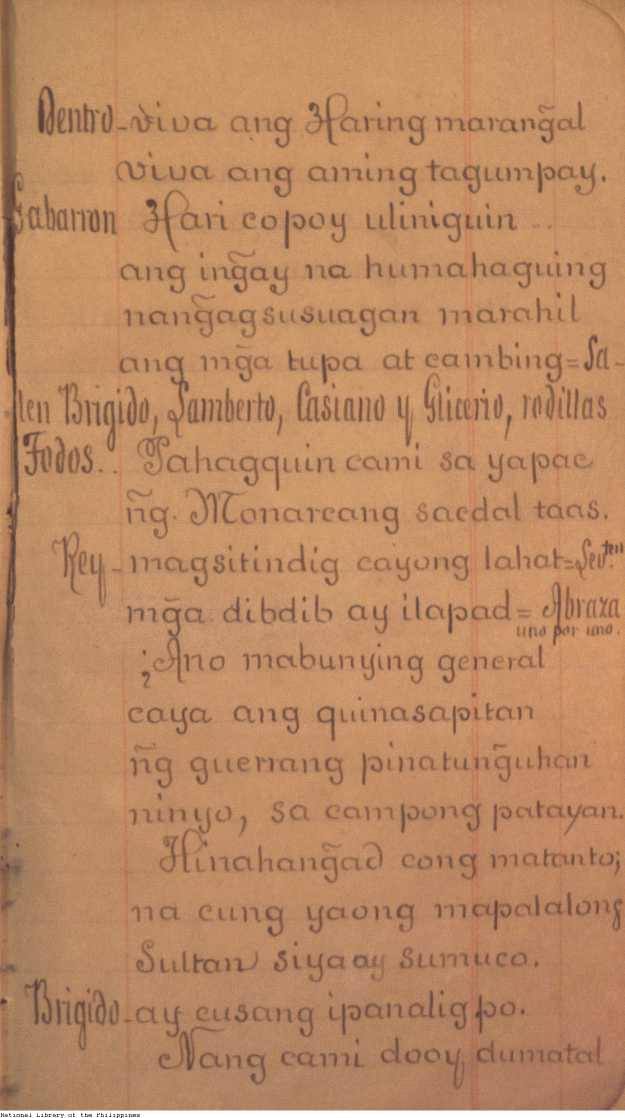 Dentro-viva ang Haring marang̃al
viva ang aming tagumpay.
Gabarron Hari co poy uliniguin ..
ang ing̃ay na humahaguing
nang̃agsusuagan marahil
ang mg̃a tupa at cambing=Sa-
len Brigido, Lamberto, Casiano y Glicerio, rodillas
Todos.. Pahagquin cami sa yapac
ñg. Monarcang sacdal taas.
Rey-magsitindig cayong lahat=Levten
mg̃a dibdib ay ilapad=Abraza
uno por uno.
¿Ano mabunying general
caya ang quinasapitan
ñg guerrang pinatung̃uhan
ninyo, sa campong patayan.
Hinahang̃ad cong matanto;
na cung yaong mapalalong
Sultan siya ay sumuco.
Brigido-ay cusang ipanalig po.
Nang cami dooy dumatal
National Library of the Philippines